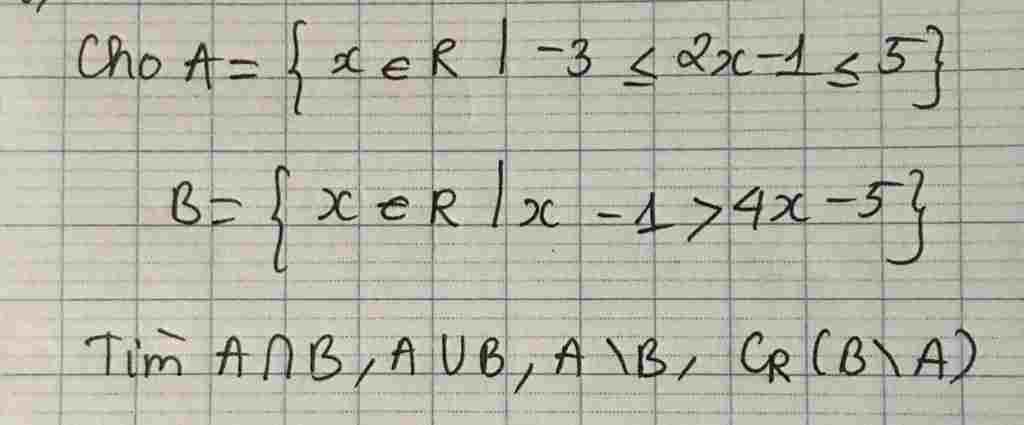 Cho A = { x ∈ R | -3 ≤ 2x-1 ≤ 5}
B = { x ∈ R | x - 1 > 4x - 5}
Tìm A ∩ B, A ∪ B, A \ B, CR (B \ A)